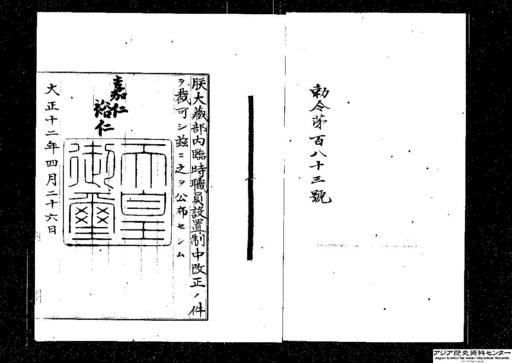 勅令第百八十三號
朕大藏部內臨時職員設置制中改正ノ件
ヲ裁可シ玆ニ之ヲ公布セシム
嘉仁
裕仁
天皇
御璽
大正十二年四月二十六日
アジア歴史資料センター
Japan Center for Asian Historical Records